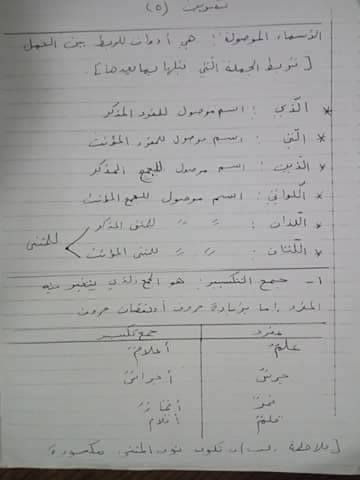 تقويت (٥)
الأسماء الموصولة: هي أدوات للربط بين الجمل
[تربط الجملة التي قبلها بما بعدها].
* الّذي : اسم موصول للمفرد المذكر
* الّتي : اسم موصول للمفرد المؤنث
* الّذين : اسم موصول للجمع المذكر
* اللّواتي : اسم موصول للجمع المؤنث
* اللّذان : " " للمثنى المذكر
للمثنى
* اللّتان : " " للمثنى المؤنث
١- جمع التكسير: هو الجمع الذي يتغير فيه
المفرد إما بزيادة حروف أو نقصان حروف
مفرد جمع تكسير
علمٌ أعلامٌ
جرسٌ أجراسٌ
أنهارٌ
قلمٌ أقلام
[ملاحظة: يجب أن تكون نون المثنى مكسورة]